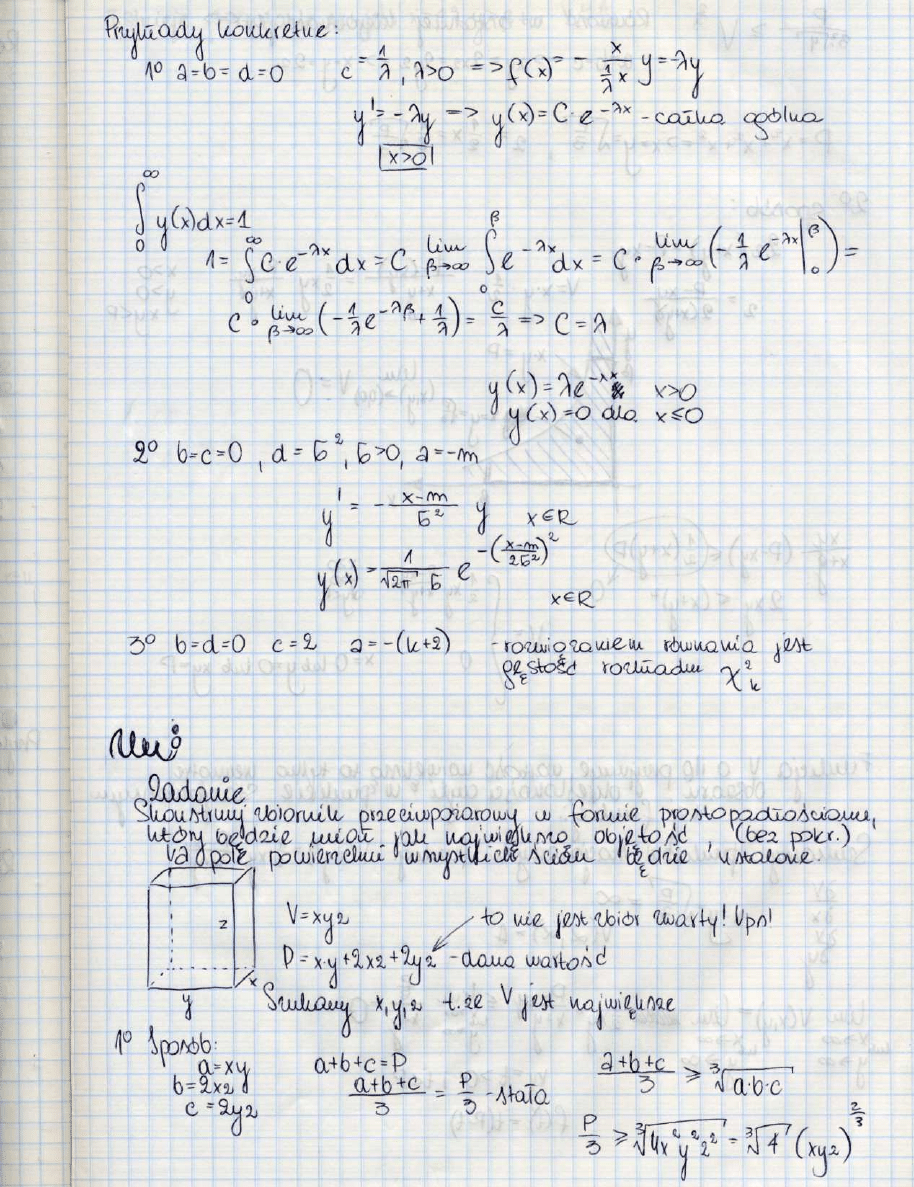 Przykłady konkretne:
1° a=b=d=0 c=1/λ, λ>0 => f(x)= - x/(1/λ x) y=-λy
y'=-λy => y(x)=C·e^{-λx} - całka ogólna
x>0
∫_0^∞ y(x)dx=1
1= ∫_0^∞ C·e^{-λx} dx = C lim_{β→∞} ∫_0^β e^{-λx} dx = C· lim_{β→∞} (-1/λ e^{-λx} |_0^β) =
C· lim_{β→∞} (-1/λ e^{-λβ} + 1/λ) = C/λ => C=λ
y(x)=λe^{-λx} x>0
y(x)=0 dla x≤0
2° b=c=0, d=б², б>0, a=-m
y' = - (x-m)/б² y x∈R
y(x)= 1/(√2π б) e^{-((x-m)/2б²)²}
x∈R
3° b=d=0 c=2 a=-(k+2) - rozwiązaniem równania jest
gęstość rozkładu χ²_k
Zadanie:
Skonstruuj zbiornik przeciwpożarowy w formie prostopadłościanu,
który będzie miał jak największą objętość, (bez pokr.)
pole powierzchni wszystkich ścian będzie ustalone
z
x
y
V=xyz
to nie jest zbiór zwarty!
P=x·y+2xz+2yz - dana wartość
Szukamy x,y,z t.że V jest największe
1° Sposób:
a=xy
b=2xz
c=2yz
a+b+c=P
(a+b+c)/3 = P/3 - stała
(a+b+c)/3 ≥ ∛(a·b·c)
P/3 ≥ ∛(4x²y²z²) = ∛4 (xyz)^{2/3}